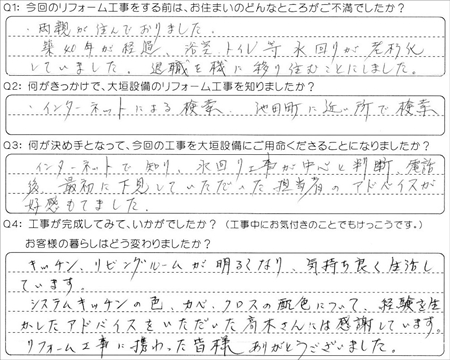 Q1: 今回のリフォーム工事をする前は、お住まいのどんなところがご不満でしたか？
・両親が住んでおりました。
築40年が経過、浴室、トイレ等水回りが老朽化
していました。退職を機に移り住むことにしました。
Q2: 何がきっかけで、大垣設備のリフォーム工事を知りましたか？
・インターネットによる検索 池田町に近い所で検索
Q3: 何が決め手となって、今回の工事を大垣設備にご用命くださることになりましたか？
インターネットで知り、水回り工事が中心と判断、電話
後、最初に下見していただいた担当者のアドバイスが
好感もてました。
Q4: 工事が完成してみて、いかがでしたか？（工事中にお気付きのことでもけっこうです。）
お客様の暮らしはどう変わりましたか？
キッチン、リビングルームが明るくなり、気持ち良く生活し
ています。
システムキッチンの色、カベ、クロスの配色について、経験を生
かしたアドバイスをいただいた高木さんには感謝しています。
リフォーム工事に携わった皆様ありがとうございました。